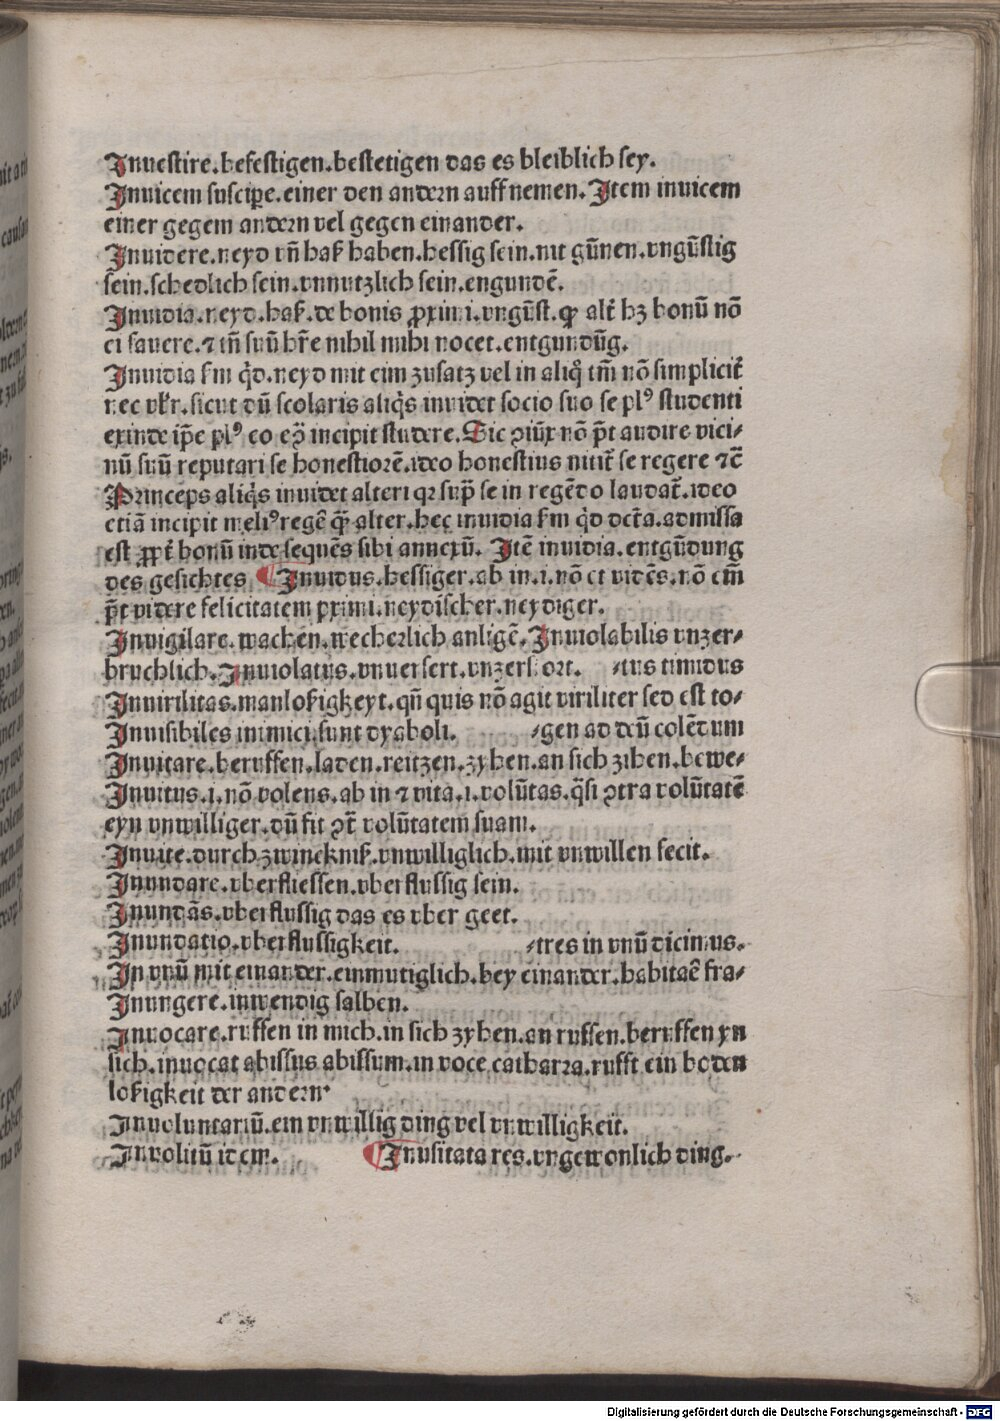 Inuestire.befestigen.bestetigen das es bleiblich sey.
Inuicem suscipe.einer den andern auff nemen. Item inuicem
einer gegem andern vel gegen einander.
Inuidere.neyd vñ haß haben.hessig sein.nit gūnen.vngūstig
sein.schedlich sein.vnnutzlich sein.engundē.
Inuidia.neyd.haß.de bonis ꝓximi.vngūst.ꝙ alt̃ hꝫ bonū nō
ei fauere.⁊ tñ suū br̄e nihil mihi nocet.entgundūg.
Inuidia ẜm q̇d.neyd mit eim zusatz vel in aliq̊ tm̄ nō simplicit̃
nec vlr̄.sicut dū scolaris aliq̇s inuidet socio suo se plꝰ studenti
exinde ip̄e plꝰ eo incipit studere.Sic ꝯiūx nō pōt audire vici⸗
nū suū reputari se honestiorē.ideo honestius nitit̃ se regere ⁊c̄
Princeps aliq̇s inuidet alteri qꝛ sup̄ se in regēdo laudat̃.ideo
etiā incipit meliꝰ regē q̄ꝫ alter.hec inuidia ẜm q̇d dc̄ta.admissa
est ꝓpt̃ bonū inde sequēs sibi annexū. Itē inuidia.entgūdung
des gesichtes ¶ Inuidus.hessiger.ab in.i.nō et vidēs.nō em̄
pōt videre felicitatem proximi.neydischer.neydiger.
Inuigilare.wachen.wecherlich anligē.Inuiolabilis vnzer⸗
bruchlich.Inuiolatus.vnuersert.vnzerstort. ⸗tus timidus
Inuirilitas.manloßigkeyt.qn̄ quis nō agit viriliter sed est to⸗
Inuisibiles inimici.sunt dyaboli. ⸗gen ad deū colēdum
Inuitare.beruffen.laden.reitzen.zyhen.an sich zihen.bewe⸗
Inuitus.i.nō volens.ab in ⁊ vita.i.volūtas.q̄si ꝯtra volūtatē
eyn vnwilliger.dū fit ꝯt̃ volūtatem suam.
Inuite.durch zwinckniß.vnwilliglich.mit vnwillen fecit.
Inundare.vberfliessen.vberflussig sein.
Inundās.vberflussig das es vber geet.
Inundatio.vberflussigkeit. ⸗tres in vnū dicimus.
In vnū mit einander.einmutiglich.bey einander.habitaē fra⸗
Inungere.inwendig salben.
Inuocare.ruffen in mich.in sich zyhen.an ruffen.beruffen yn
sich.inuocat abissus abissum.in voce catharra.rufft ein boden
loßigkeit der andern
Inuoluntariū.ein vnwillig ding vel vnwilligkeit.
Inuolitū idem. ¶ Inusitata res.vngewonlich ding.
Digitalisierung gefördert durch die Deutsche Forschungsgemeinschaft - DFG